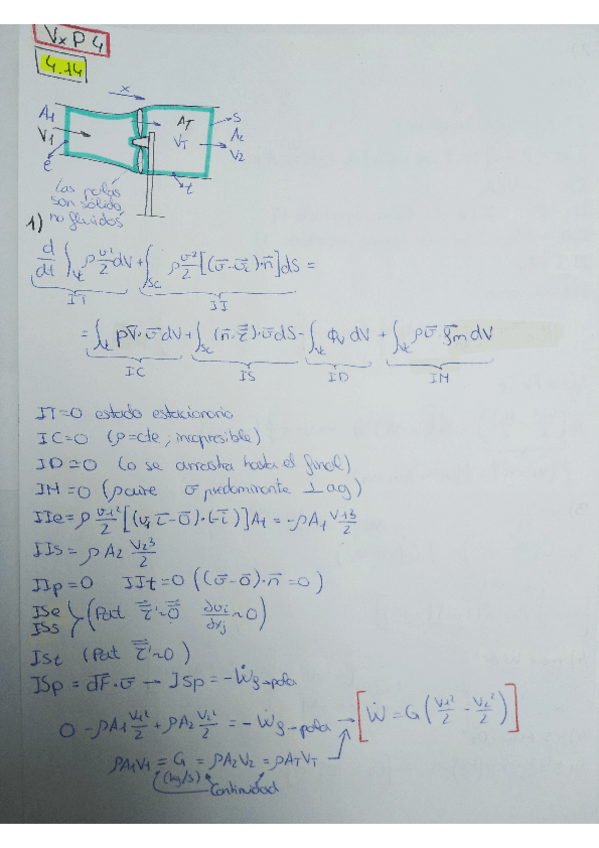 VxP 4
4.14
x
A1
V1
e
AT
VT
s
A2
V2
t
Las palas
son sólido,
no fluidos
1)
d/dt ∫Vt ρ v²/2 dV + ∫Sc ρ v²/2 [(v̄-v̄c)·n̄] dS =
IT II
= ∫Vt p∇̄·v̄ dV + ∫Sc (n̄·τ̿)·v̄ dS - ∫Vt ɸv dV + ∫Vt ρv̄ f̄m dV
IC IS ID IM
IT=0 estado estacionario
IC=0 (ρ=cte, incompresible)
ID≃0 (o se arrastra hasta el final)
IM=0 (ρaire v predominante ⊥ag)
IIe=ρ V1²/2 [(V1 ī-0̄)·(-ī)] A1 = -ρA1 V1³/2
IIs= ρA2 V2³/2
IIp=0 IIt=0 ((v̄-v̄)·n̄=0)
ISe
ISs
(Pat τ̿'~0̿ ∂vi/∂xj ~0)
ISt (Pat τ̿'~0)
ISp = dF̄·v̄ → ISp = -Ẇg→pala
0 -ρA1 V1²/2 + ρA2 V2²/2 = -Ẇg→pala → [Ẇ=G(V1²/2 - V2²/2)]
ρA1V1 = G = ρA2V2 = ρATVT
(kg/s) Continuidad